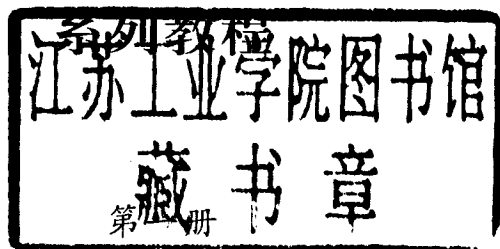 系列教程
江苏工业学院图书馆
藏书章
第 册